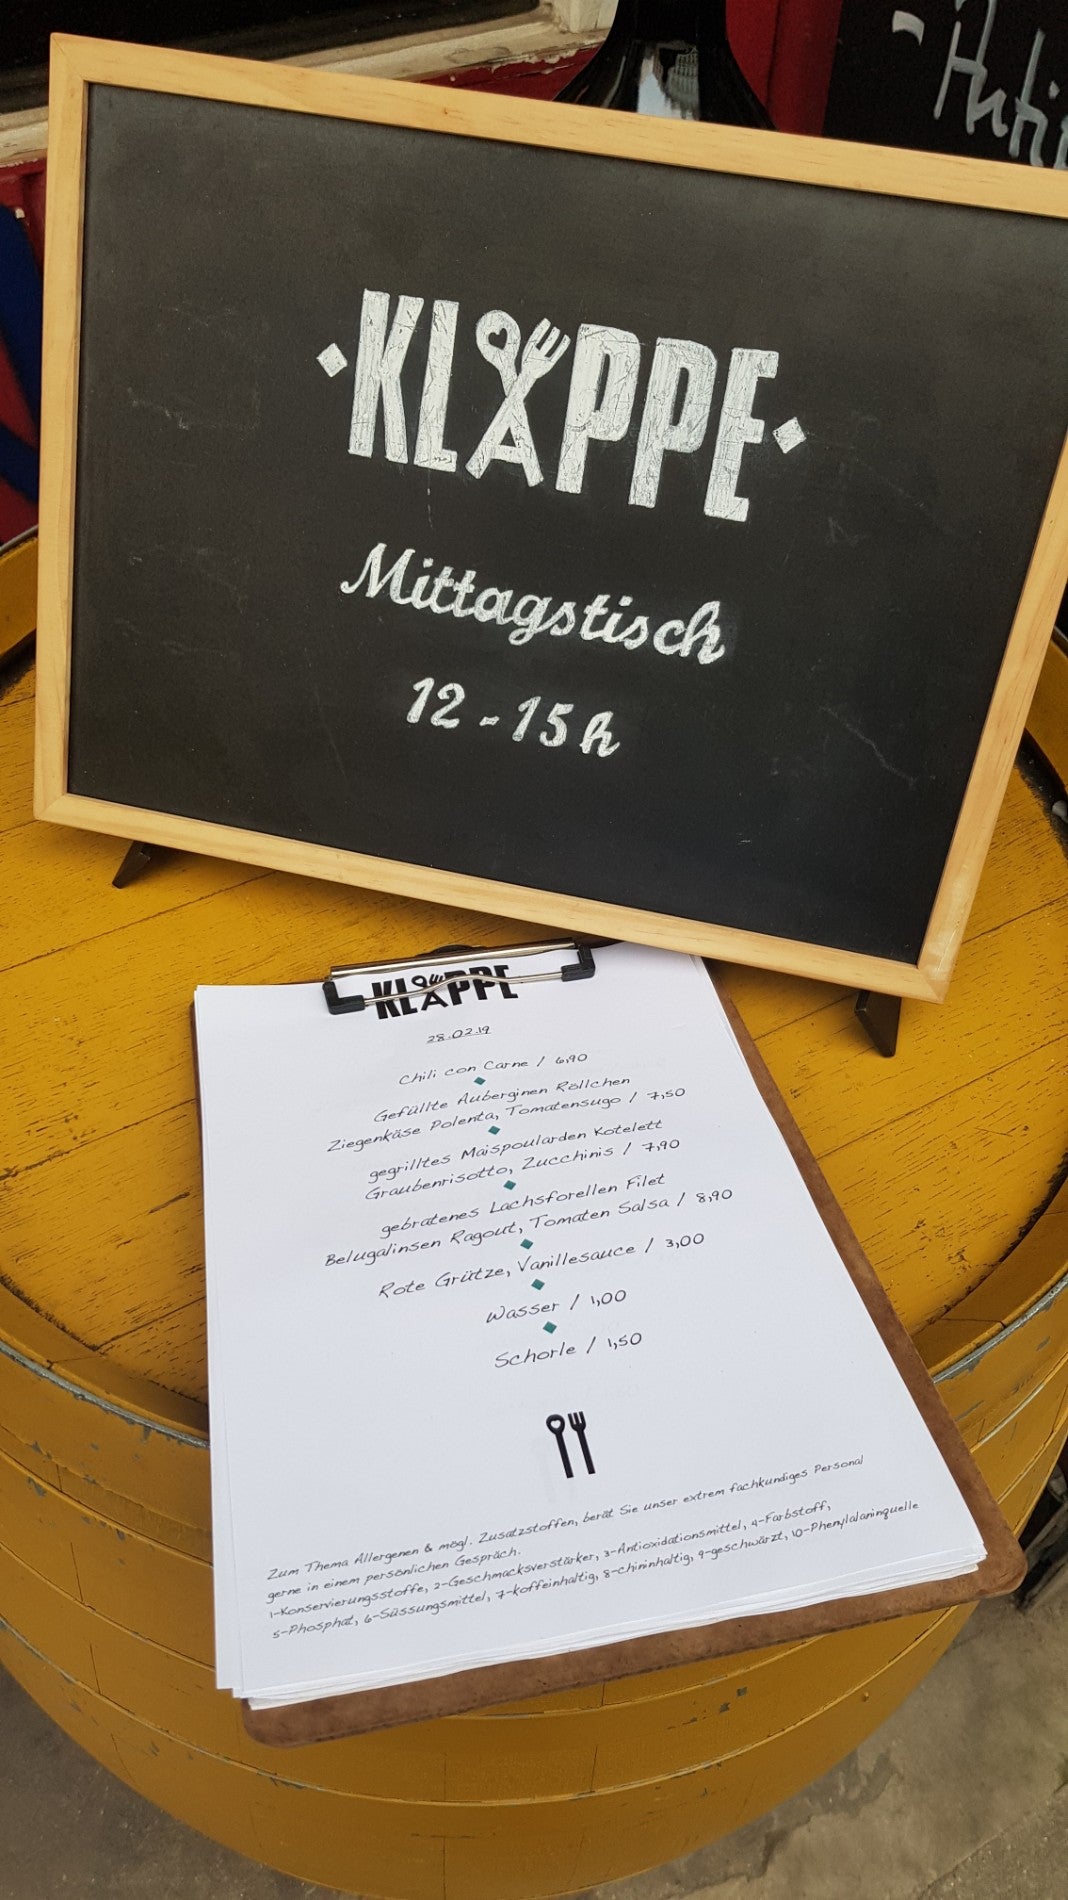 KLAPPE
Mittagstisch
12-15h
KLAPPE
28.02.19
Chili con Carne / 6,90
Gefüllte Auberginen Röllchen
Ziegenkäse Polenta, Tomatensugo / 7,50
gegrilltes Maispoularden Kotelett
Graubenrisotto, Zucchinis / 7,90
gebratenes Lachsforellen Filet
Belugalinsen Ragout, Tomaten Salsa / 8,90
Rote Grütze, Vanillesauce / 3,00
Wasser / 1,00
Schorle / 1,50
Zum Thema Allergenen & mögl. Zusatzstoffen, berät Sie unser extrem fachkundiges Personal
gerne in einem persönlichen Gespräch.
1-Konservierungsstoffe, 2-Geschmacksverstärker, 3-Antioxidationsmittel, 4-Farbstoff,
5-Phosphat, 6-Süssungsmittel, 7-koffeinhaltig, 8-chininhaltig, 9-geschwärzt, 10-Phenylalaninquelle